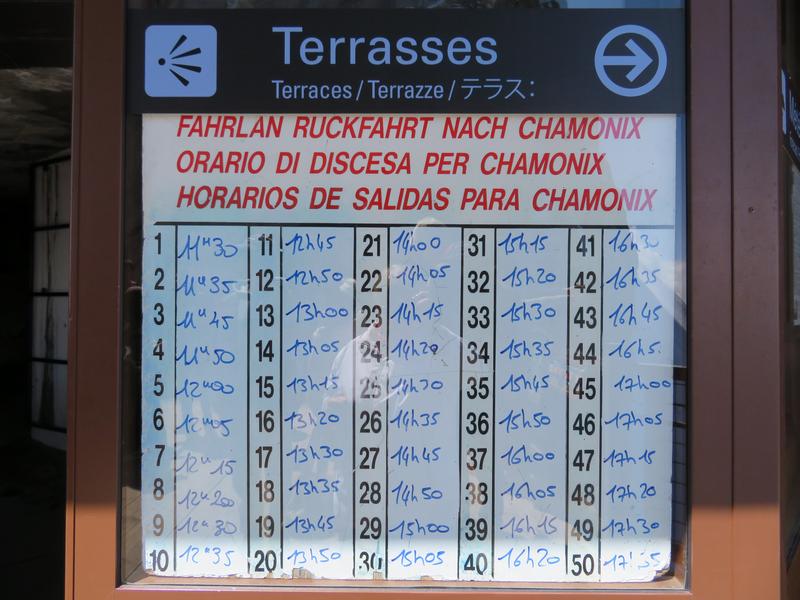 Terrasses
Terraces / Terrazze / テラス:
FAHRLAN RUCKFAHRT NACH CHAMONIX
ORARIO DI DISCESA PER CHAMONIX
HORARIOS DE SALIDAS PARA CHAMONIX
1 11H30 11 12h45 21 14h00 31 15h15 41 16h30
2 11H35 12 12h50 22 14h05 32 15h20 42 16h35
3 11H45 13 13h00 23 14h15 33 15h30 43 16h45
4 11H50 14 13h05 24 14h20 34 15h35 44 16h5
5 12H00 15 13h15 25 14h30 35 15h45 45 17h00
6 12H05 16 13h20 26 14h35 36 15h50 46 17h05
7 12H15 17 13h30 27 14h45 37 16h00 47 17h15
8 18 13h35 28 14h50 38 16h05 48 17h20
9 12H30 19 13h45 29 15h00 39 16h15 49 17h30
10 12H35 20 13h50 30 15h05 40 16h20 50